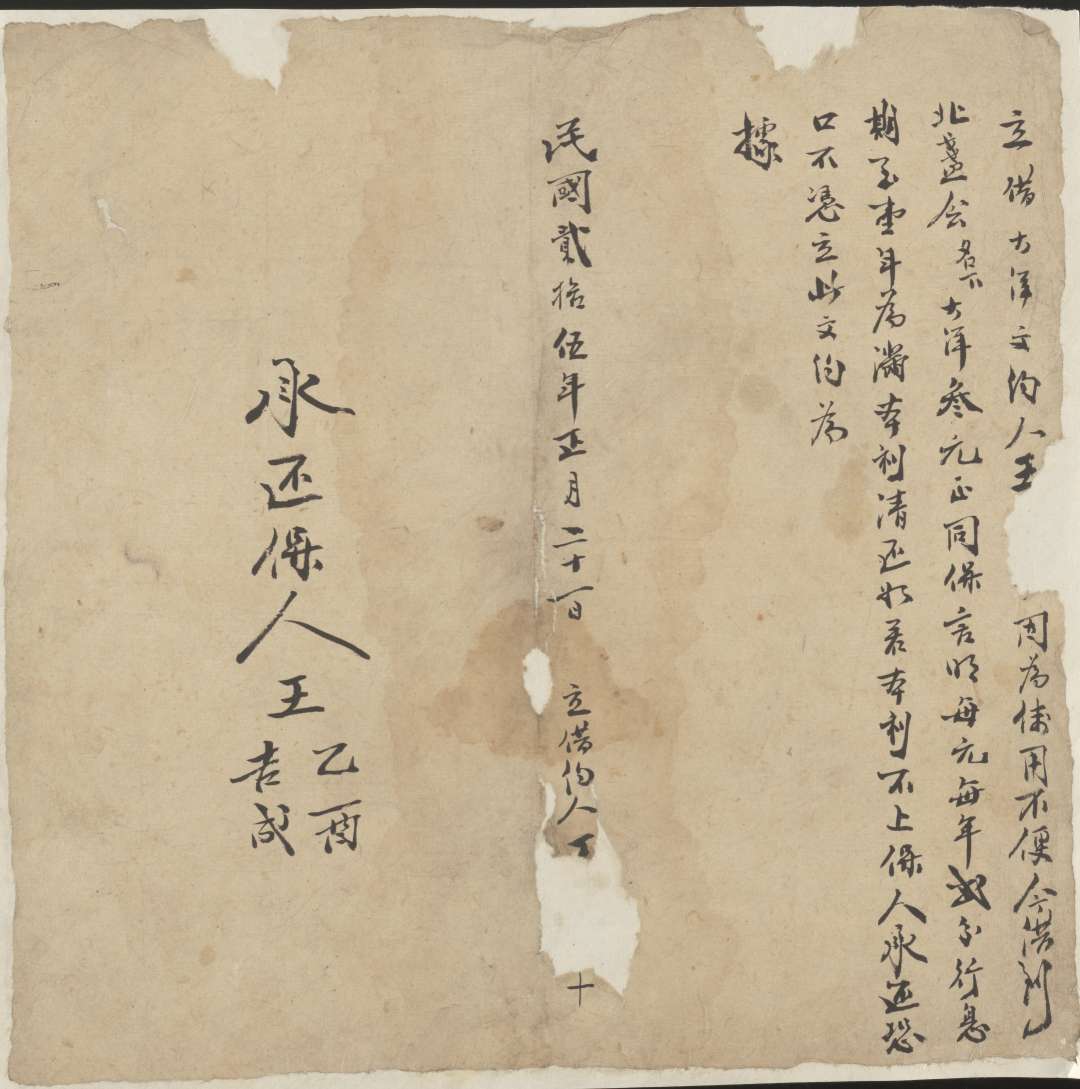 立借大洋文约人王 因為使用不便今借到
北盏会名下大洋叁元正同保言明每元每年弍分行息
期至壹年為滿本利清还如若本利不上保人承还恐
口不憑立此文约為
據
民國貳拾伍年正月二十一日 立借约人王 十
承还保人王乙酉
吉成